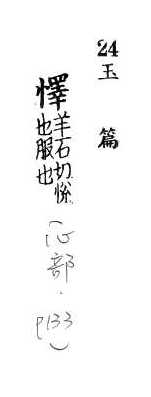 24
玉篇
懌羊石切悅
也服也
(心部.
P133)